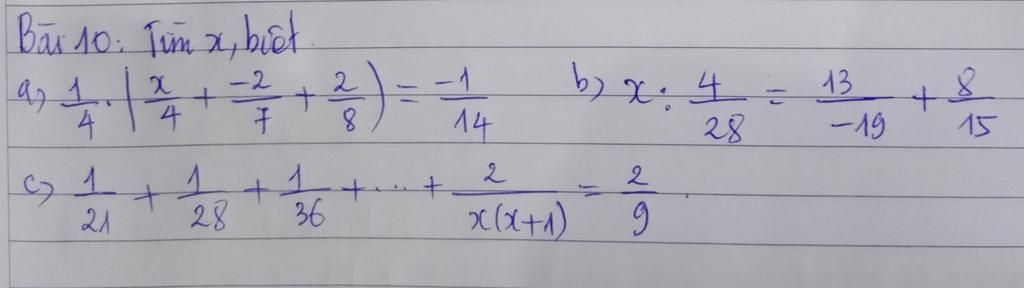 Bài 10: Tìm x, biết.
a, 1/4 . (x/4 + -2/7 + 2/8) = -1/14 b) x : 4/28 = 13/-19 + 8/15
c) 1/21 + 1/28 + 1/36 + ... + 2/x(x+1) = 2/9.